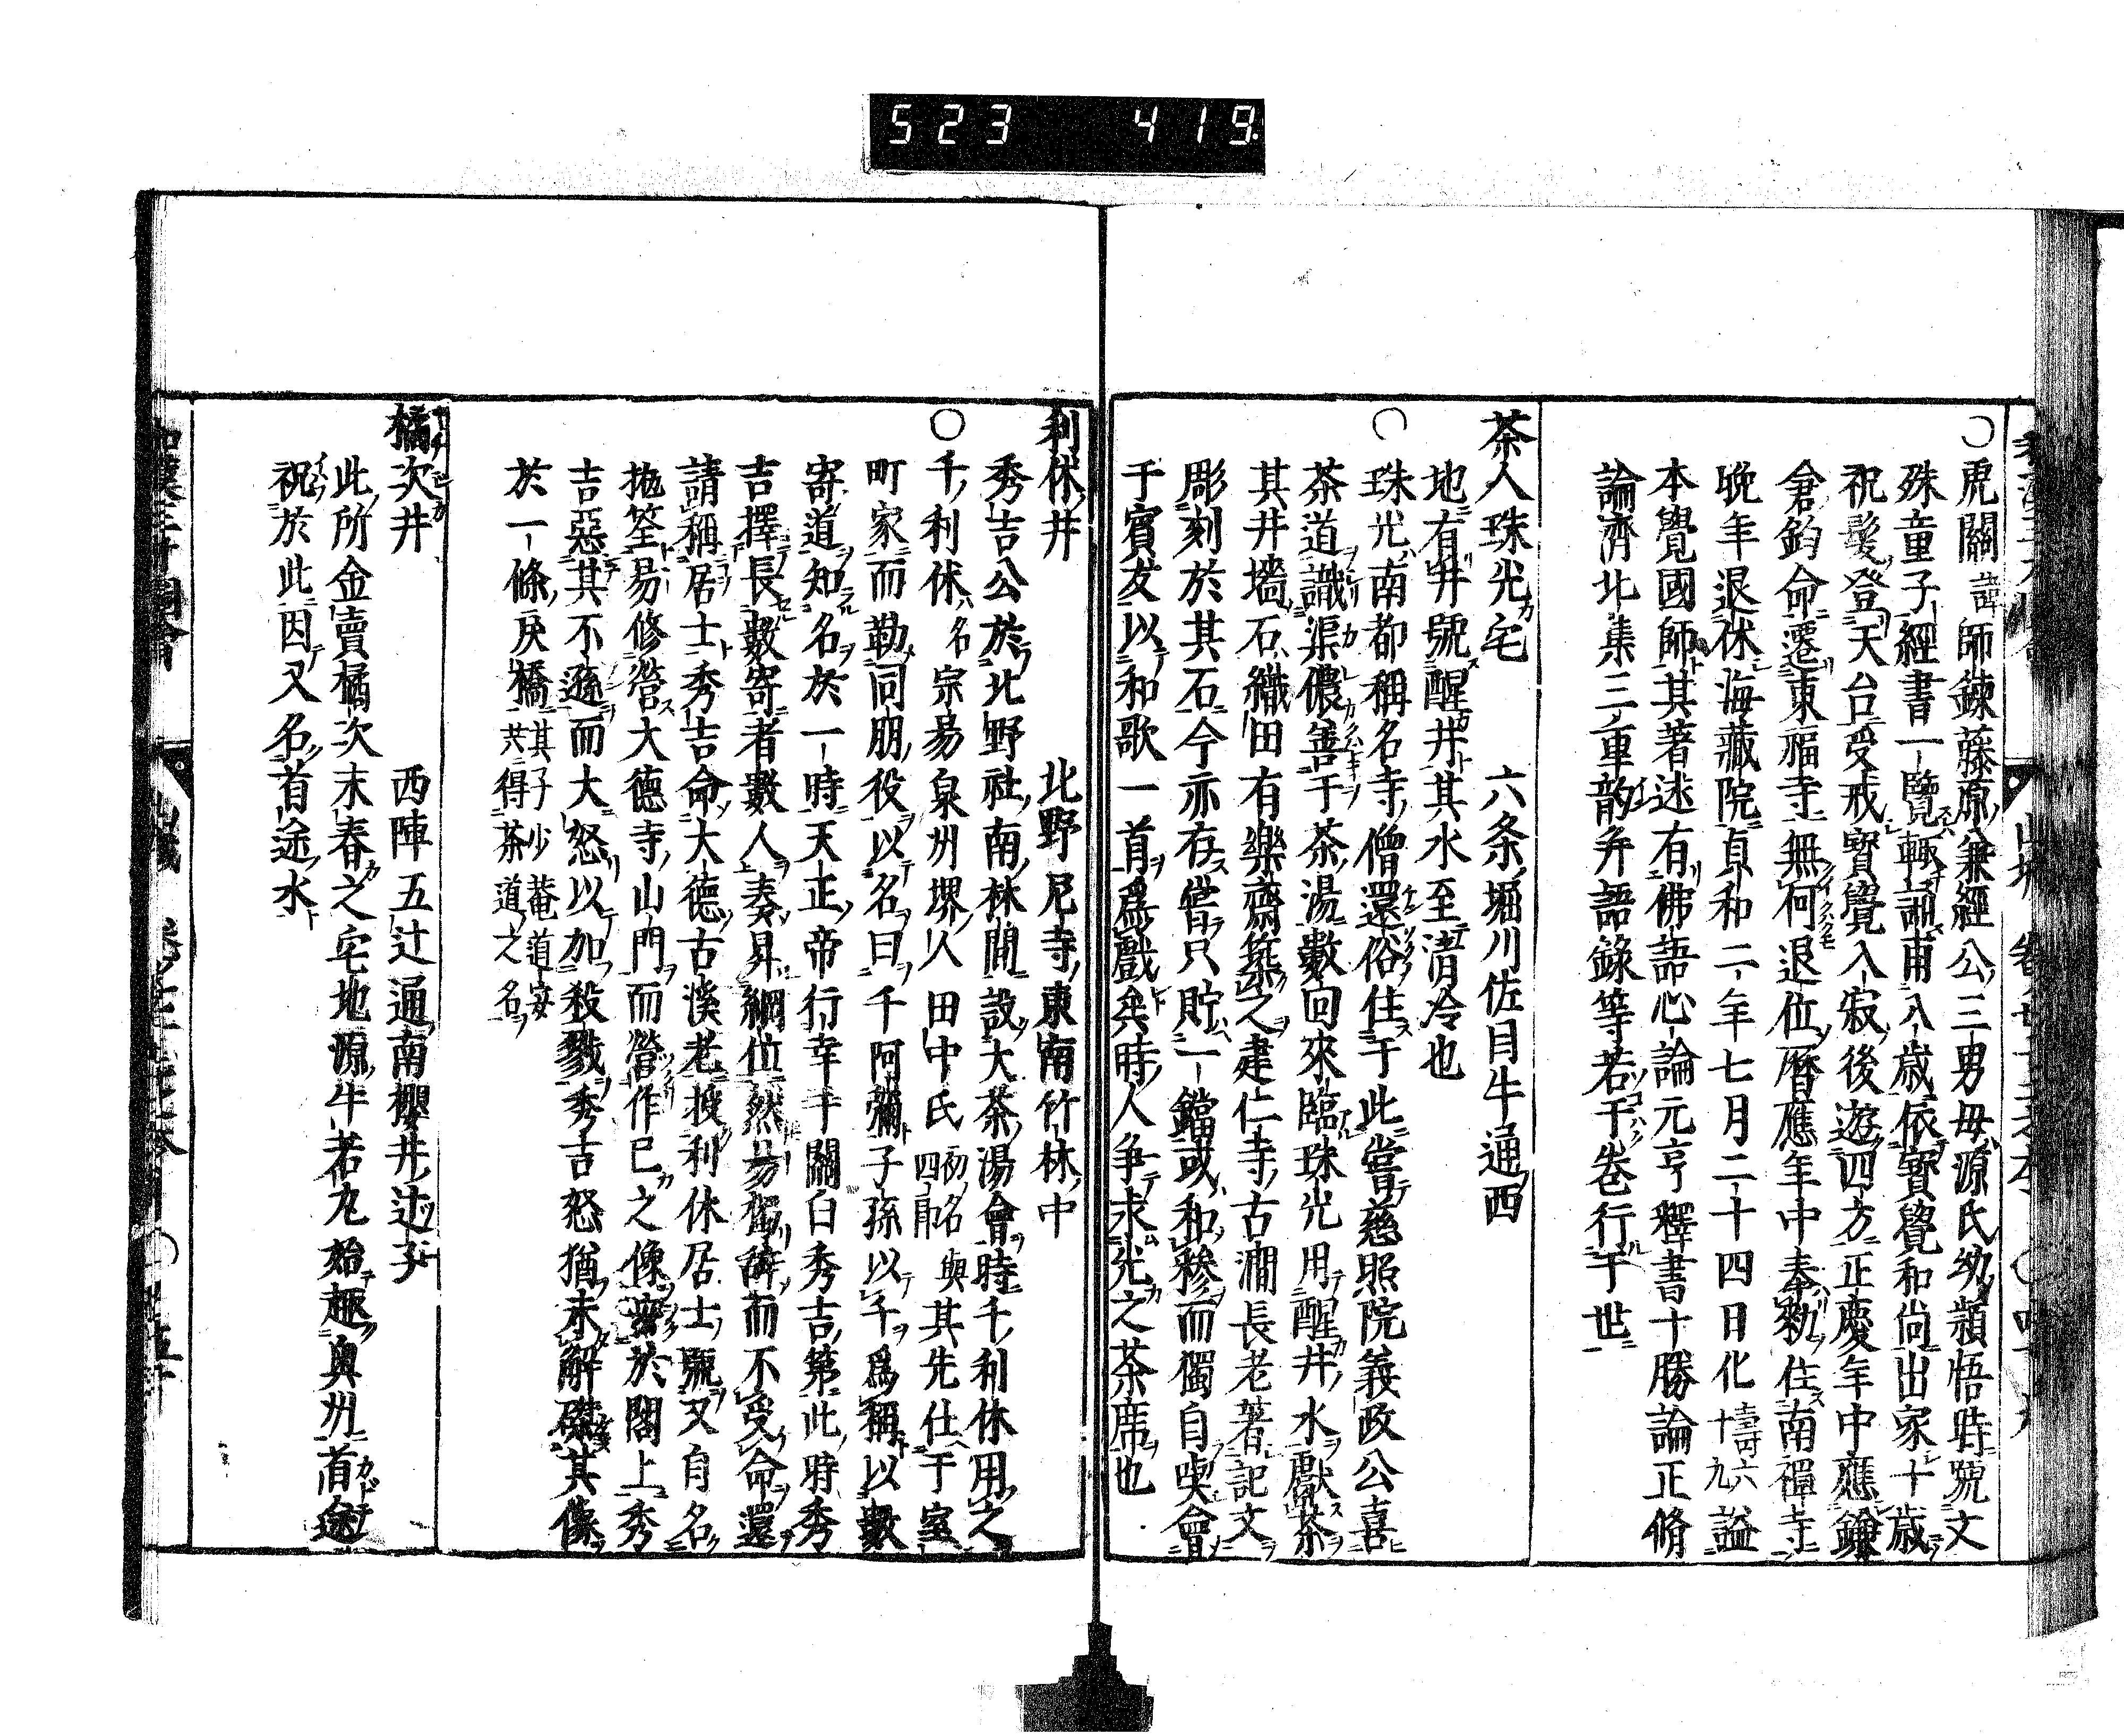 523 419
○虎關諱師錬藤原兼經公三男母源氏幼穎悟時號文
殊童子經書一覽輙誦甫八歳依寳覺和尚出家十歳
祝髮登天台受戒寳覺入寂後遊四方正慶年中應鎌
倉鈞命遷東福寺無何退位曆應年中奉勅住南禪寺
晩年退休海藏院貞和二年七月二十四日化壽六十九謚
本覺國師其著述有佛語心論元亨釋書十勝論正脩
論濟北集三重韵并語錄等若干卷行于世
茶人珠光宅 六条堀川佐目牛通西
地有井號醒井其水至清冷也
○珠光南都稱名寺僧還俗住于此當慈照院義政公喜
茶道識渠儂善于茶湯數回來臨珠光用醒井水獻茶
其井墻石織田有樂齋築之建仁寺古澗長老著記文
彫刻於其石今亦存當只貯一鐺或和糝而獨自喫會
于賓友以和歌一首爲戲矣時人争求光之茶席也
利休井 北野尼寺東南竹林中
秀吉公於北野社南林間設大茶湯會時千利休用之
○千利休名宗易泉州堺人田中氏初名與四郎其先仕于室
町家而勒同朋役以名曰千阿彌子孫以千爲稱以數
寄道知名於一時天正帝行幸于關白秀吉第此時秀
吉擇長數寄者數人奏昇綱位然易獨辭而不受命還
請稱居士秀吉命大德古溪老授利休居士號又自名
抛筌易修營大德寺山門而營作已之像齋於閣上秀
吉惡其不遜而大怒以加殺戮秀吉怒猶未解磔其像
於一條戻橋其子少菴道安共得茶道之名
橘次井 西陣五辻通南櫻井辻子
此所金賣橘次末春之宅地源牛若丸始趣奥州首途
祝於此因又名首途水